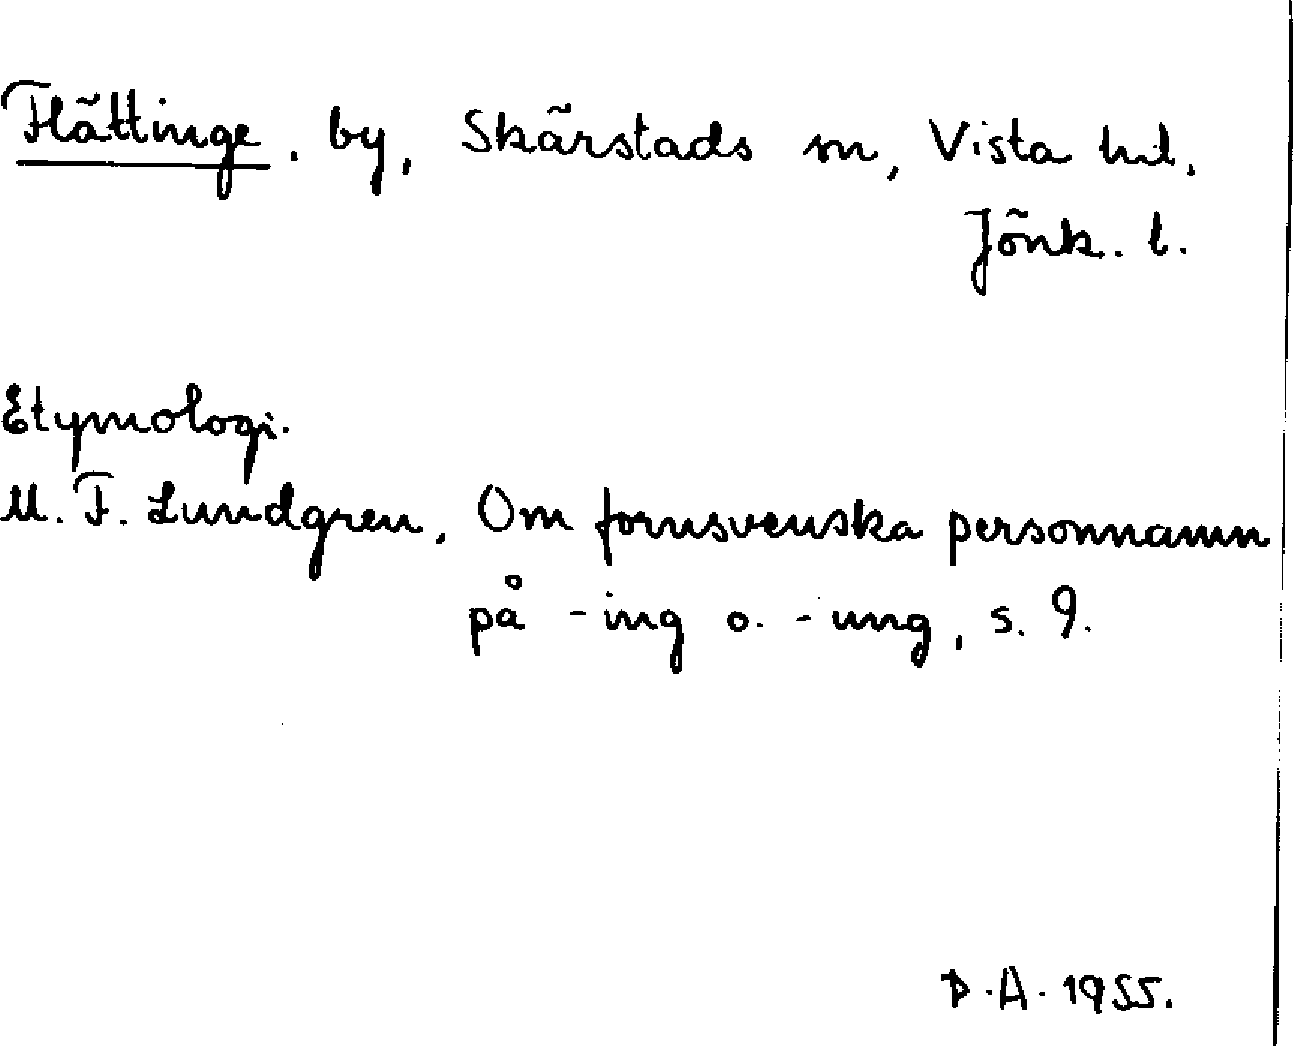 Flättinge. by, Skärstads sn, Vista hd.
Jönk. l.
Etymologi.
M. F. Lundgren, Om fornsvenska personnamn
på -ing o. -ung, s. 9.
D.A. 1955.